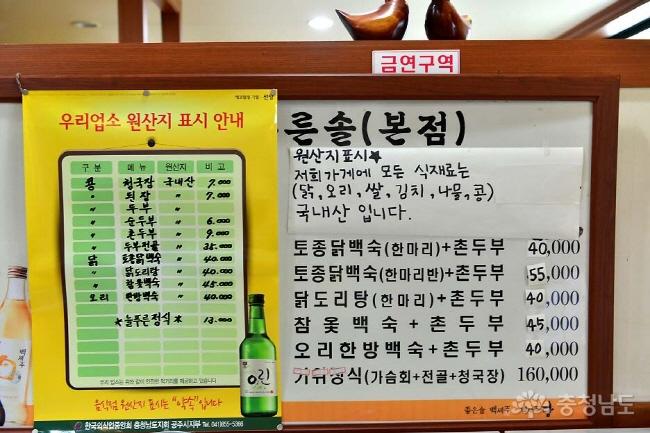 금연구역
새로운 맛을 가진 선양
우리업소 원산지 표시 안내
구 분 메 뉴 원산지 비 고
콩 청국장 국내산 7.000
〃 된장 〃 7.000
〃 두부 〃
〃 순두부 〃 6.000
〃 촌두부 〃 9.000
〃 두부전골 〃 35.000
닭 토종닭백숙 〃 40.000
〃 닭도리탕 〃 40.000
〃 참옻백숙 〃 45.000
오리 한방백숙 〃 40.000
*늘푸른정식* 13.000
우리 업소는 위와 같이 안전한 먹거리를 제공하고 있습니다
음식점 원산지 표시는 "약속"입니다
한국외식업중앙회 충청남도지회 공주시지부 Tel. 041)855-5366
o린
른솔(본점)
원산지표시★
저희가게에 모든 식재료는
(닭,오리,쌀,김치,나물,콩)
국내산 입니다.
토종닭백숙(한마리)+촌두부 40,000
토종닭백숙(한마리반)+촌두부 55,000
닭도리탕(한마리)+촌두부 40,000
참옻백숙+촌두부 45,000
오리한방백숙+촌두부 40,000
정식(가슴회+전골+청국장) 160,000
좋은술 백세주
백세주
충청남도